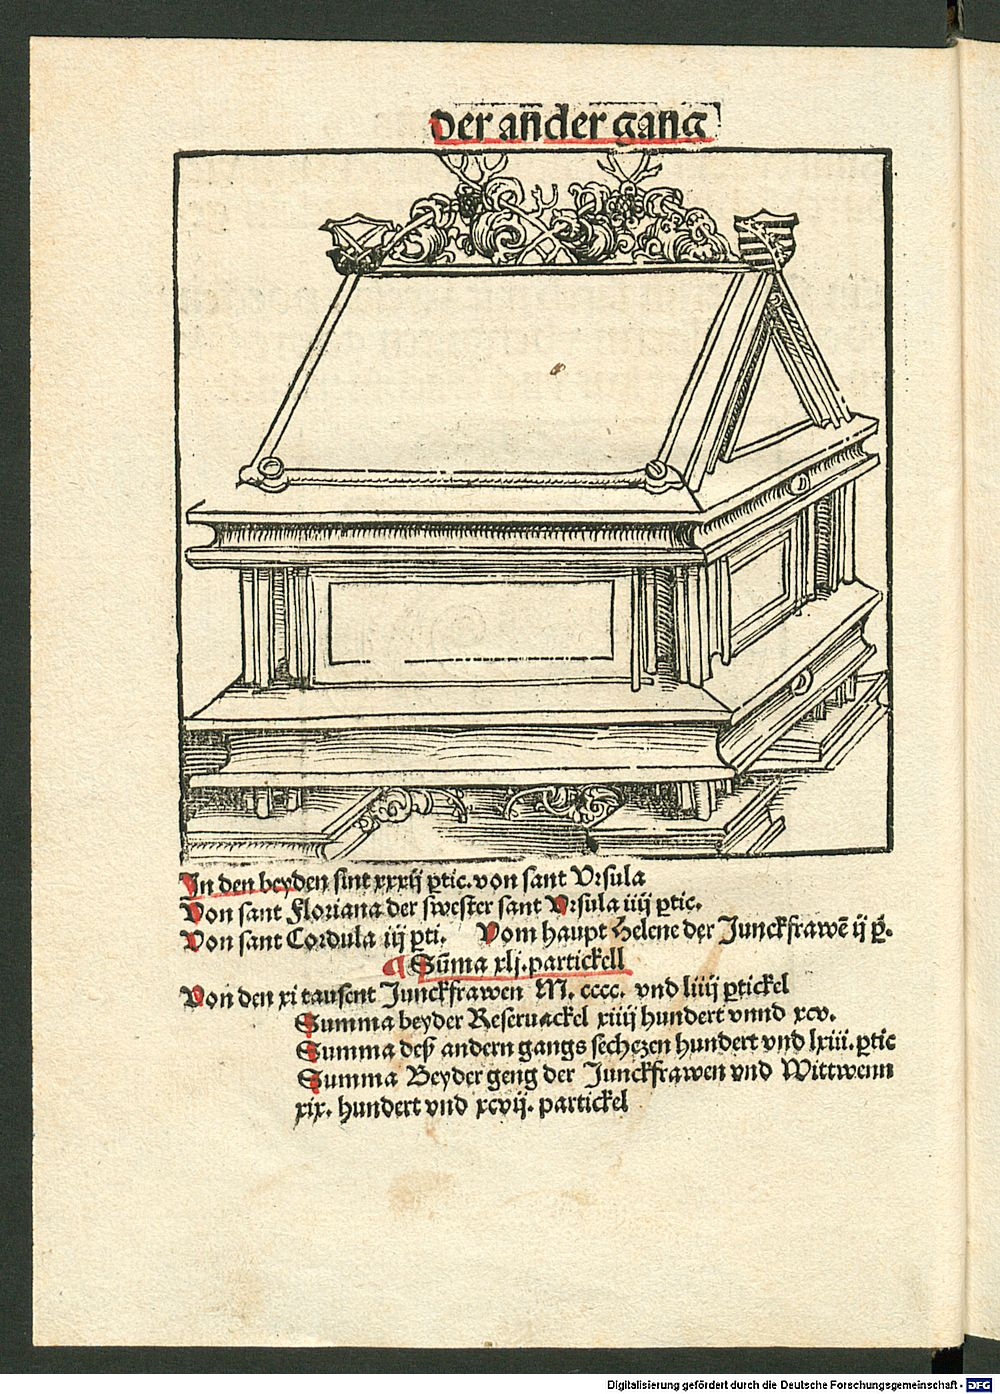 der an̄der gang
In den beyden sint xxxij ꝑtic. von sant Vrsula
Von sant Floriana der swester sant Vrsula iiij ꝑtic.
Von sant Cordula iij ꝑti. Vom haupt Helene der Junckfrawē ij ꝑ.
¶ Sūma xlj. partickell
Von den xi tausent Junckfrawen M. cccc. vnd liiij ꝑtickel
Summa beyder Reseruackel xiiij hundert vnnd xcv.
Summa deß andern gangs sechezen hundert vnd lxiii. ꝑtic
Summa Beyder geng der Junckfrawen vnd Wittwenn
xix. hundert vnd xcvij. partickel
Digitalisierung gefördert durch die Deutsche Forschungsgemeinschaft - DFG